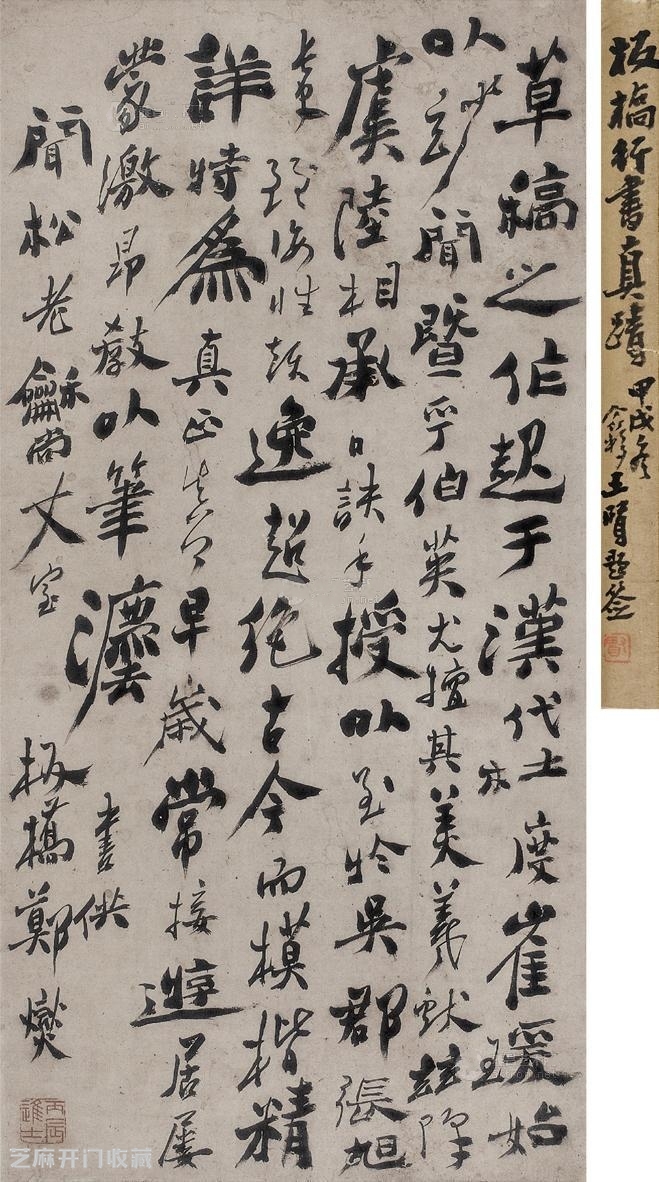 草稿之作起于漢代杜度崔瑗始
以妙聞暨乎伯英尤擅其美羲獻玆降
虞陸相承口訣手授以至於吳郡張旭
長史雖姿性顛逸超絕古今而模楷精
詳特為真正真卿早歲常接遊居屢
蒙激昂教以筆灋
聞松老龢尚丈室
書供
板橋鄭燮
丙辰進士
板橋行書真蹟
甲戌冬
王賢題簽
芝麻开门收藏